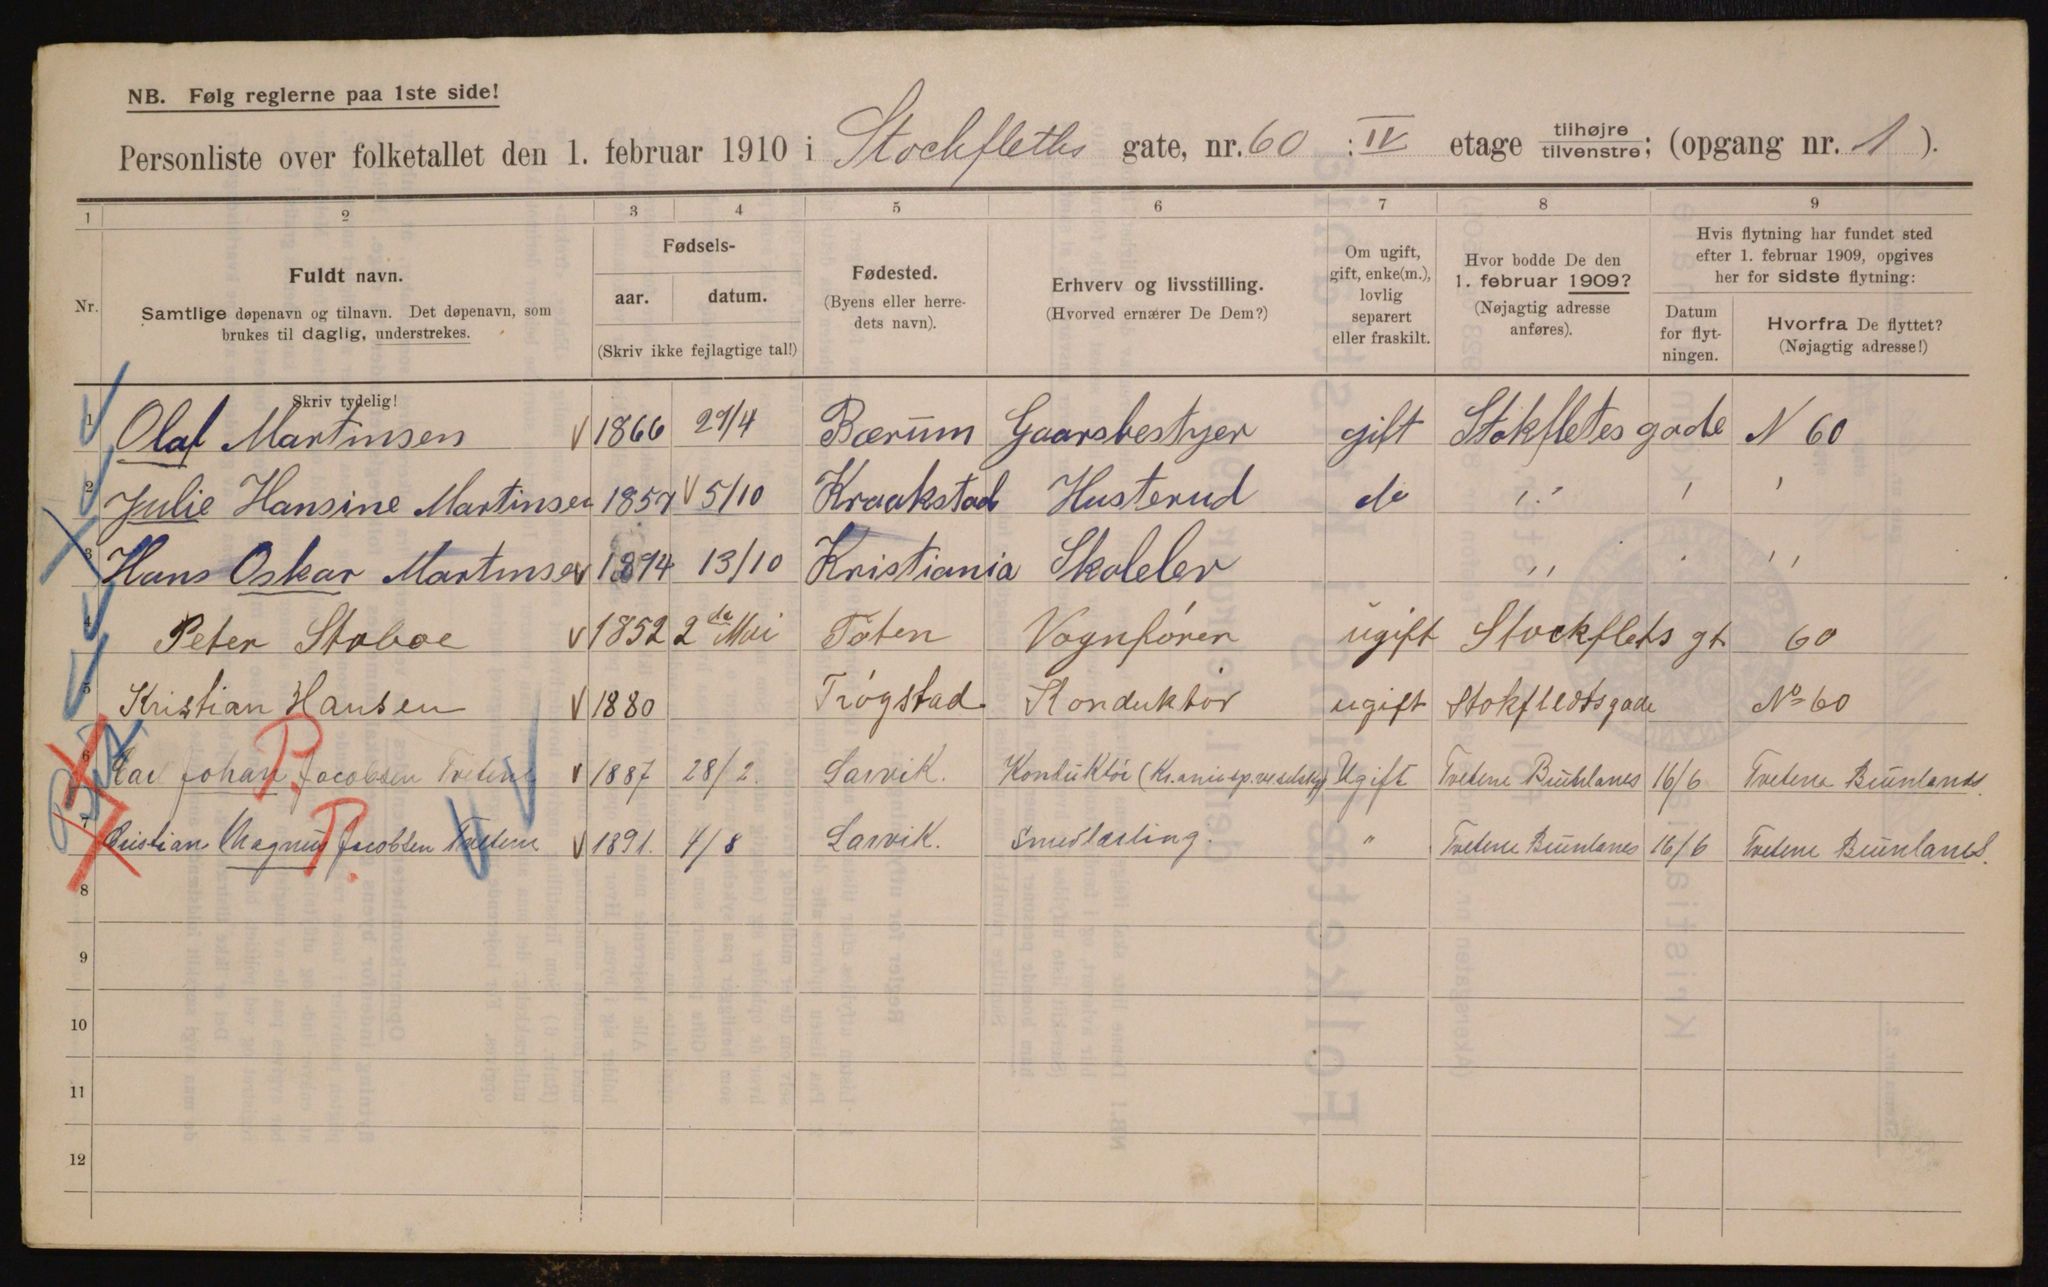 NB. Følg reglerne paa 1ste side!
Personliste over folketallet den 1. februar 1910 i Stockfleths gate, nr. 60 : IV etage tilhøjre tilvenstre; (opgang nr. 1 ).
1 2 3 4 5 6 7 8 9
Nr. Fuldt navn. Samtlige døpenavn og tilnavn. Det døpenavn, som brukes til daglig, understrekes. Skriv tydelig!
Fødsels- aar. datum. (Skriv ikke fejlagtige tal!)
Fødested. (Byens eller herredets navn).
Erhverv og livsstilling. (Hvorved ernærer De Dem?)
Om ugift, gift, enke(m.), lovlig separert eller fraskilt.
Hvor bodde De den 1. februar 1909? (Nøjagtig adresse anføres).
Hvis flytning har fundet sted efter 1. februar 1909, opgives her for sidste flytning:
Datum for flytningen. Hvorfra De flyttet? (Nøjagtig adresse!)
1 Olaf Martinsen 1866 29/4 Bærum Gaarsbestyer gift Stokfletes gade N 60
2 Julie Hansine Martinsen 1857 5/10 Kraakstad Husterud do " " ' '
3 Hans Oskar Martinsen 1894 13/10 Kristiania Skoleler " "
4 Peter Staboe 1852 2de Mai Toten Vognfører ugift Stockflets gt 60
5 Kristian Hansen 1880 Trøgstad Konduktør ugift Stokfledtsgade No 60
6 Carl Johan Jacobsen Tvetene 1887 28/2. Larvik. Konduktør Ugift Tvetene Brunlanes 16/6 Tvetene Brunlands.
7 Cristian Magnus Jacobsen Tvetene 1891. 4/8 Larvik. Smedlærling. " Tvetene Brunlanes 16/6 Tvetene Brunlanes.
8
9
10
11
12